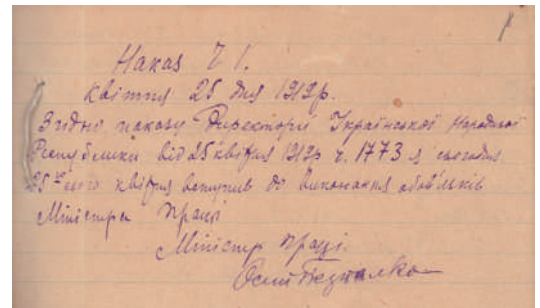 Наказ Ч 1.
Квітня 25 дня 1919 р.
Згідно наказу Директорії Української Народньої
Республіки від 25 квітня 1919 р. ч. 1773 я сьогодня
25-го сього квітня вступив до виконання обов'язків
Міністра Праці
Міністр праці
Осип Безпалко